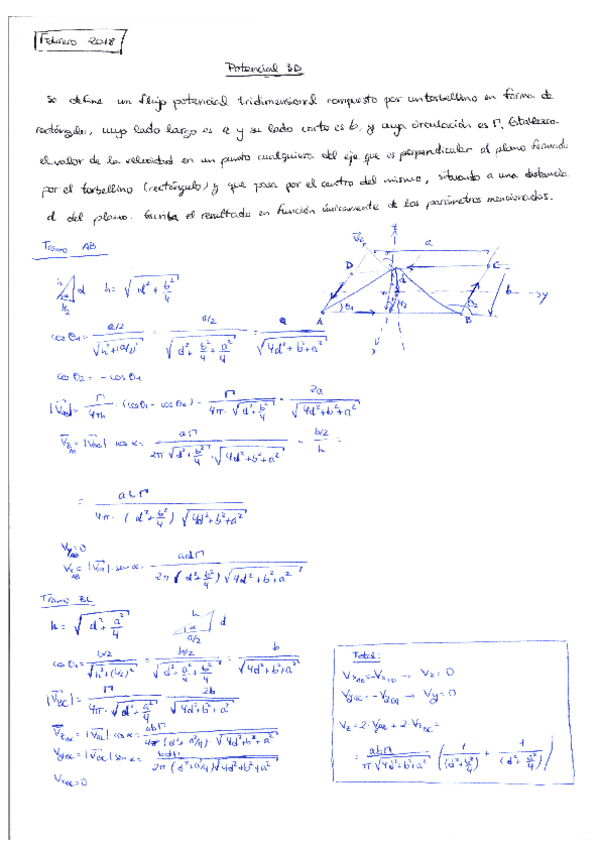 Febrero 2018
Potencial 3D
Se define un flujo potencial tridimensional compuesto por un torbellino en forma de
rectángulo, cuyo lado largo es a y su lado corto es b, y cuya circulación es Γ. Establezca
el valor de la velocidad en un punto cualquiera del eje que es perpendicular al plano formado
por el torbellino (rectángulo) y que pasa por el centro del mismo, situado a una distancia
d del plano. Escriba el resultado en función únicamente de los parámetros mencionados.
Tramo AB
h = √(d² + b²/4)
h d b/2
cos θ₁ = (a/2)/√(h² + (a/2)²) = (a/2)/√(d² + b²/4 + a²/4) = a/√(4d² + b² + a²)
cos θ₂ = - cos θ₁
a D C b A B y z d θ₁ θ₂
|V_AB| = Γ/(4πh) · (cos θ₁ - cos θ₂) = Γ/(4π · √(d² + b²/4)) · 2a/√(4d² + b² + a²)
V_zAB = |V_AB| · cos α = aΓ/(2π √(d² + b²/4) · √(4d² + b² + a²)) · (b/2)/h =
= abΓ/(4π · (d² + b²/4) √(4d² + b² + a²))
V_yAB = 0
V_xAB = |V_AB| · sen α = adΓ/(2π (d² + b²/4) √(4d² + b² + a²))
Tramo BC
h = √(d² + a²/4)
h d α a/2
cos θ₁ = (b/2)/√(h² + (b/2)²) = (b/2)/√(d² + a²/4 + b²/4) = b/√(4d² + b² + a²)
|V_BC| = Γ/(4π · √(d² + a²/4)) · 2b/√(4d² + b² + a²)
V_zBC = |V_BC| cos α = abΓ/(4π (d² + a²/4) · √(4d² + b² + a²))
V_yBC = |V_BC| sen α = bdΓ/(2π (d² + a²/4) √(4d² + b² + a²))
V_xBC = 0
Total:
V_xAB = -V_xCD → V_x = 0
V_yBC = -V_yDA → V_y = 0
V_z = 2 · V_zAB + 2 · V_zBC =
= abΓ/(π √(4d² + b² + a²)) (1/(d² + b²/4) + 1/(d² + a²/4))